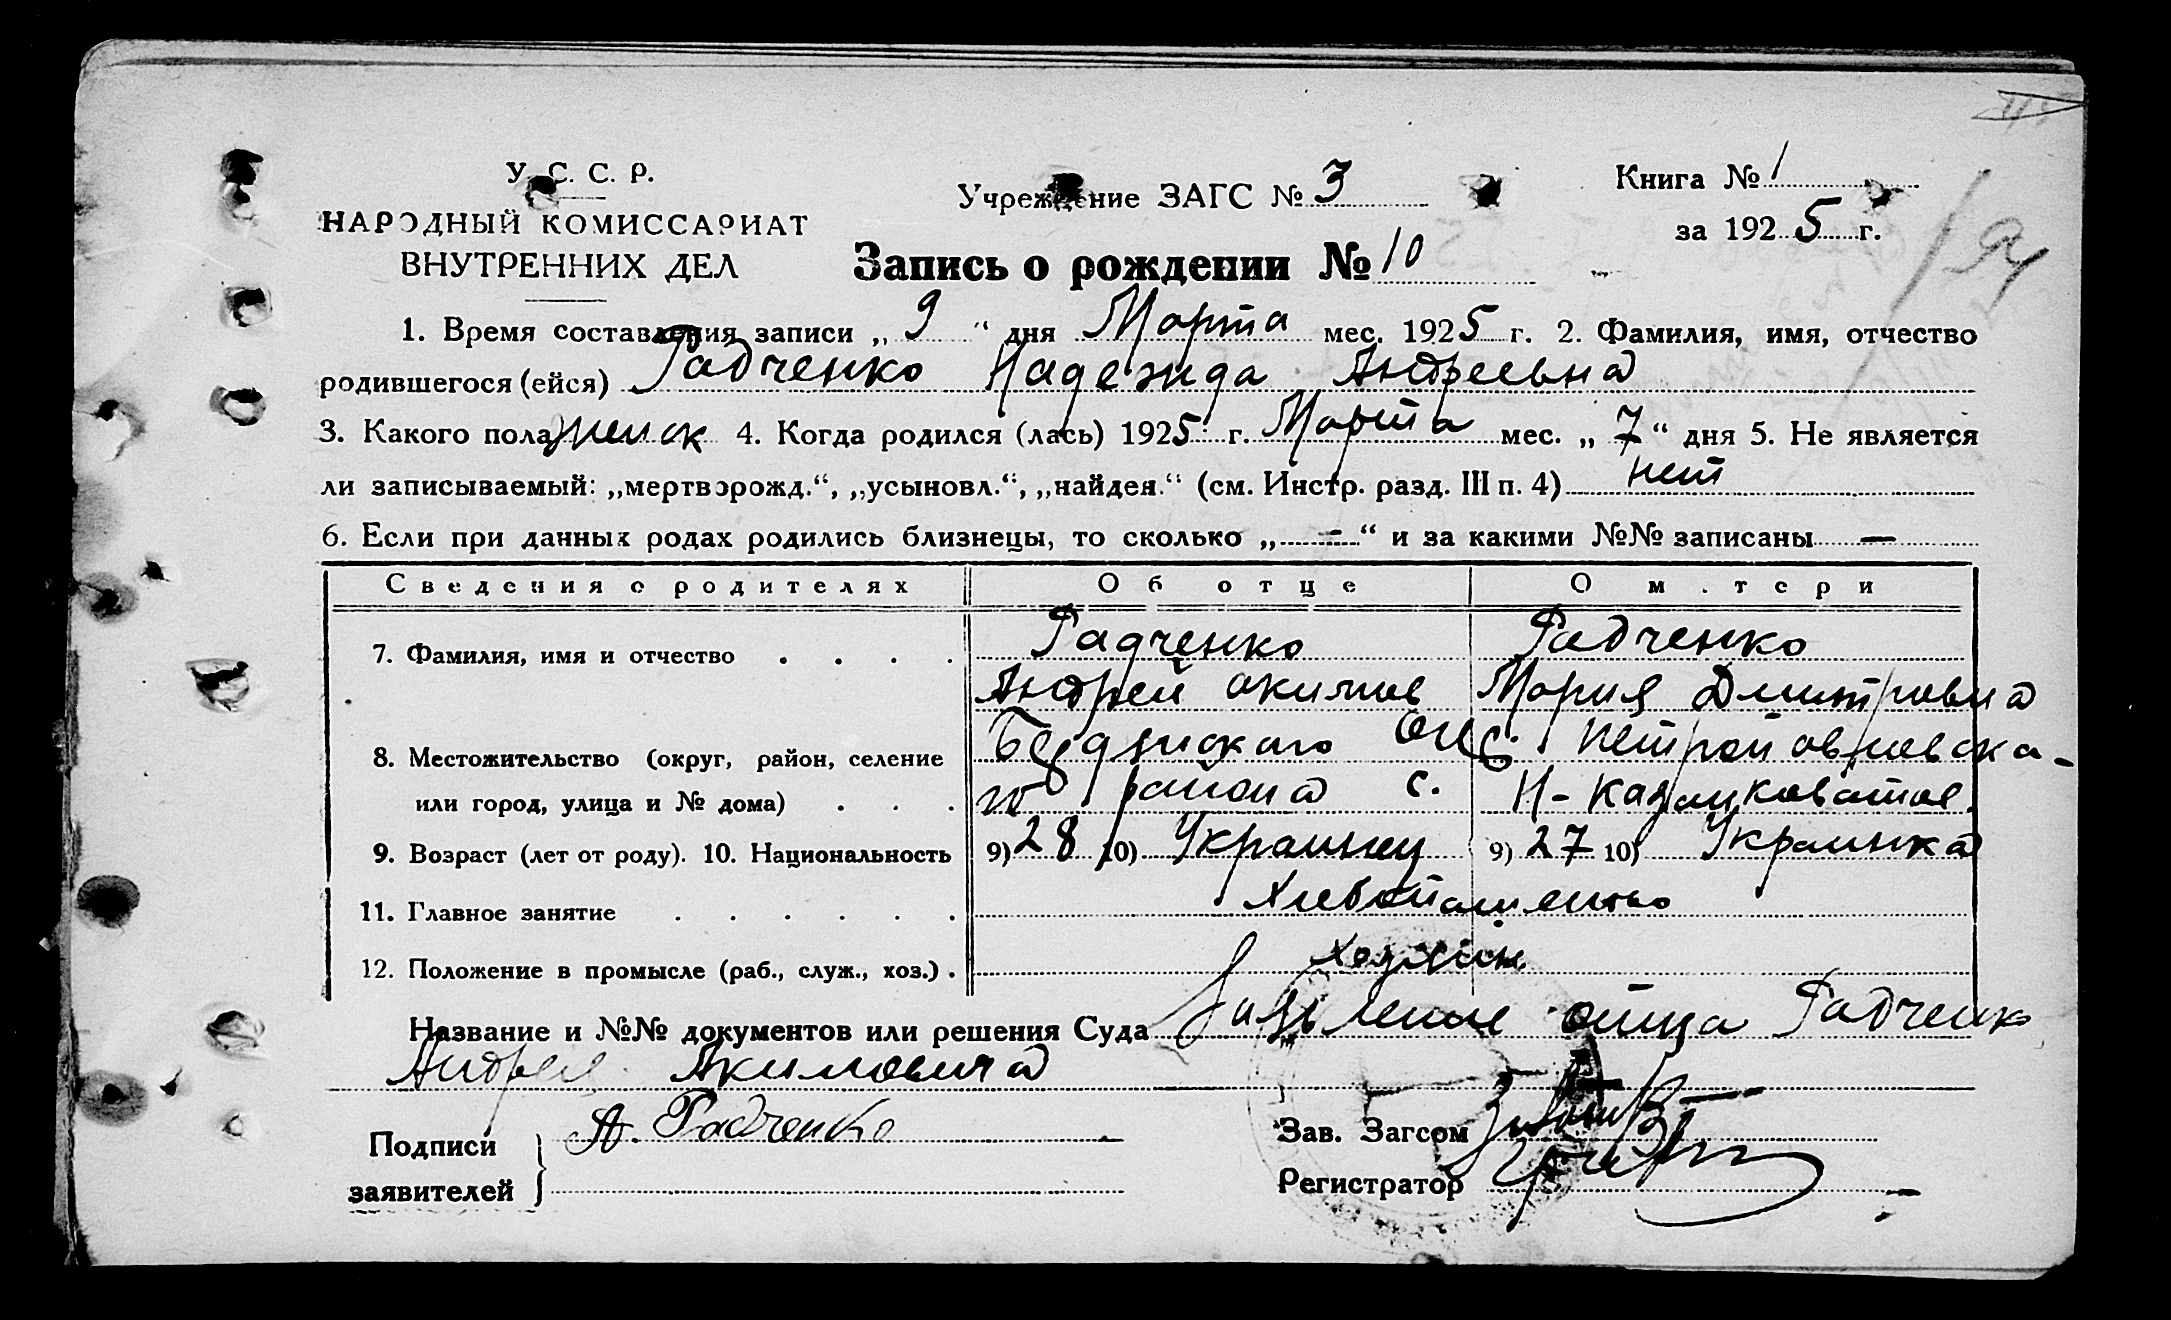 У. С. С. Р.
Учреждение ЗАГС № 3
Книга № 1
НАРОДНЫЙ КОМИССАРИАТ
за 1925 г.
ВНУТРЕННИХ ДЕЛ
Запись о рождении № 10
1. Время составления записи „ 9 “ дня Марта мес. 1925 г. 2. Фамилия, имя, отчество
родившегося (ейся) Радченко Надежда Андреевна
3. Какого пола женск 4. Когда родился (лась) 1925 г. Марта мес. „ 7 “ дня 5. Не является
ли записываемый: „мертворожд.“, „усыновл.“, „найден.“ (см. Инстр. разд. III п. 4) нет
6. Если при данных родах родились близнецы, то сколько „ — “ и за какими №№ записаны —
Сведения о родителях Об отце О м.тери
7. Фамилия, имя и отчество . . . . Радченко Радченко
Андрей Акимов Мария Дмитровна
8. Местожительство (округ, район, селение
или город, улица и № дома) . . . района с.
9. Возраст (лет от роду). 10. Национальность 9) 28 10) Украинец 9) 27 10) Украинка
11. Главное занятие . . . . . . Хлебопашество
12. Положение в промысле (раб., служ., хоз.) . Хозяин
Название и №№ документов или решения Суда Заявление отца Радченко
Андрея Акимовича
Подписи А. Радченко
заявителей
Зав. Загсом
Регистратор